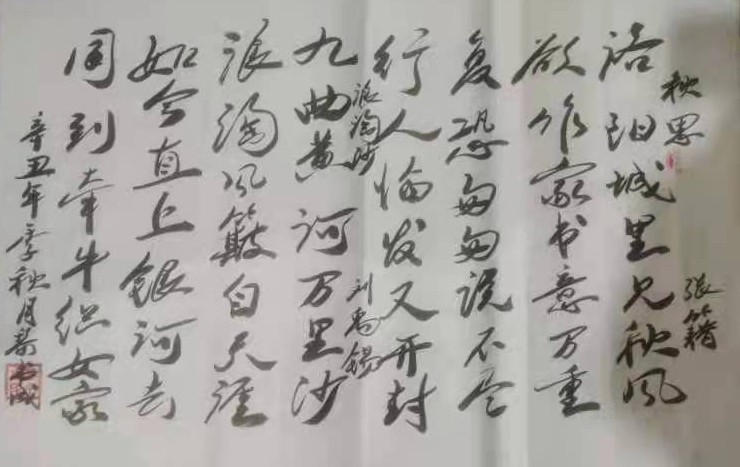 秋思 张籍
洛阳城里见秋风
欲作家书意万重
复恐匆匆说不尽
行人临发又开封
浪淘沙 刘禹锡
九曲黄河万里沙
浪淘风簸自天涯
如今直上银河去
同到牵牛织女家
辛丑年季秋月